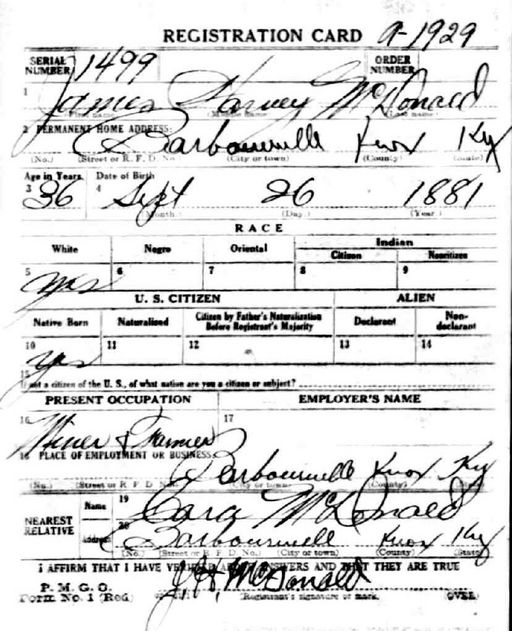 REGISTRATION CARD A-1929
SERIAL NUMBER 1499 ORDER NUMBER
1 James Harvey McDonald
(First name) (Middle name) (Last name)
2 PERMANENT HOME ADDRESS:
Barbourville Knox Ky
(No.) (Street or R. F. D. No.) (City or town) (County) (State)
Age in Years Date of Birth
3 36 4 Sept 26 1881
(Month.) (Day.) (Year.)
RACE
White Negro Oriental Indian
Citizen Noncitizen
5 yes 6 7 8 9
U. S. CITIZEN ALIEN
Native Born Naturalized Citizen by Father's Naturalization Before Registrant's Majority Declarant Non-declarant
10 yes 11 12 13 14
15
If not a citizen of the U. S., of what nation are you a citizen or subject?
PRESENT OCCUPATION EMPLOYER'S NAME
16 Miner & Farmer 17
18 PLACE OF EMPLOYMENT OR BUSINESS:
Barbourville Knox Ky
(No.) (Street or R. F. D. No.) (City or town) (County) (State)
NEAREST RELATIVE Name 19 Cara McDonald
Address 20 Barbourville Knox Ky
(No.) (Street or R. F. D. No.) (City or town) (County) (State)
I AFFIRM THAT I HAVE VERIFIED ABOVE ANSWERS AND THAT THEY ARE TRUE
P. M. G. O.
Form No. 1 (Red) J. H. McDonald
(Registrant's signature or mark.) (OVER)